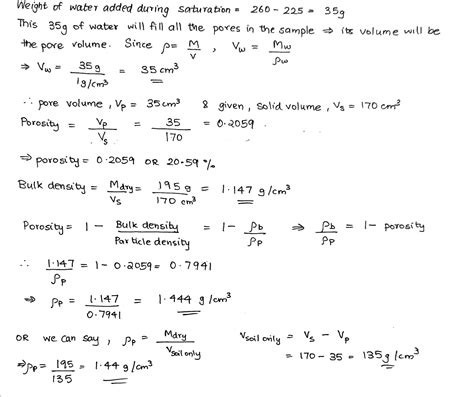 Weight of water added during saturation = 260 - 225 = 35g
This 35g of water will fill all the pores in the sample ⇒ its volume will be
the pore volume. Since ρ = M/V , Vw = Mw/ρw
⇒ Vw = 35g / 1g/cm³ = 35 cm³
∴ pore volume, Vp = 35cm³ & given, solid volume, Vs = 170 cm³
Porosity = Vp/Vs = 35/170 = 0.2059 .
⇒ porosity = 0.2059 OR 20.59 %
Bulk density = Mdry/Vs = 195g / 170 cm³ = 1.147 g/cm³
Porosity = 1 - Bulk density / Particle density = 1 - ρb/ρp ⇒ ρb/ρp = 1 - porosity
∴ 1.147/ρp = 1 - 0.2059 = 0.7941
⇒ ρp = 1.147/0.7941 = 1.444 g/cm³
OR we can say, ρp = Mdry/Vsoil only Vsoil only = Vs - Vp
⇒ρp = 195/135 = 1.44 g/cm³ = 170 - 35 = 135g/cm³